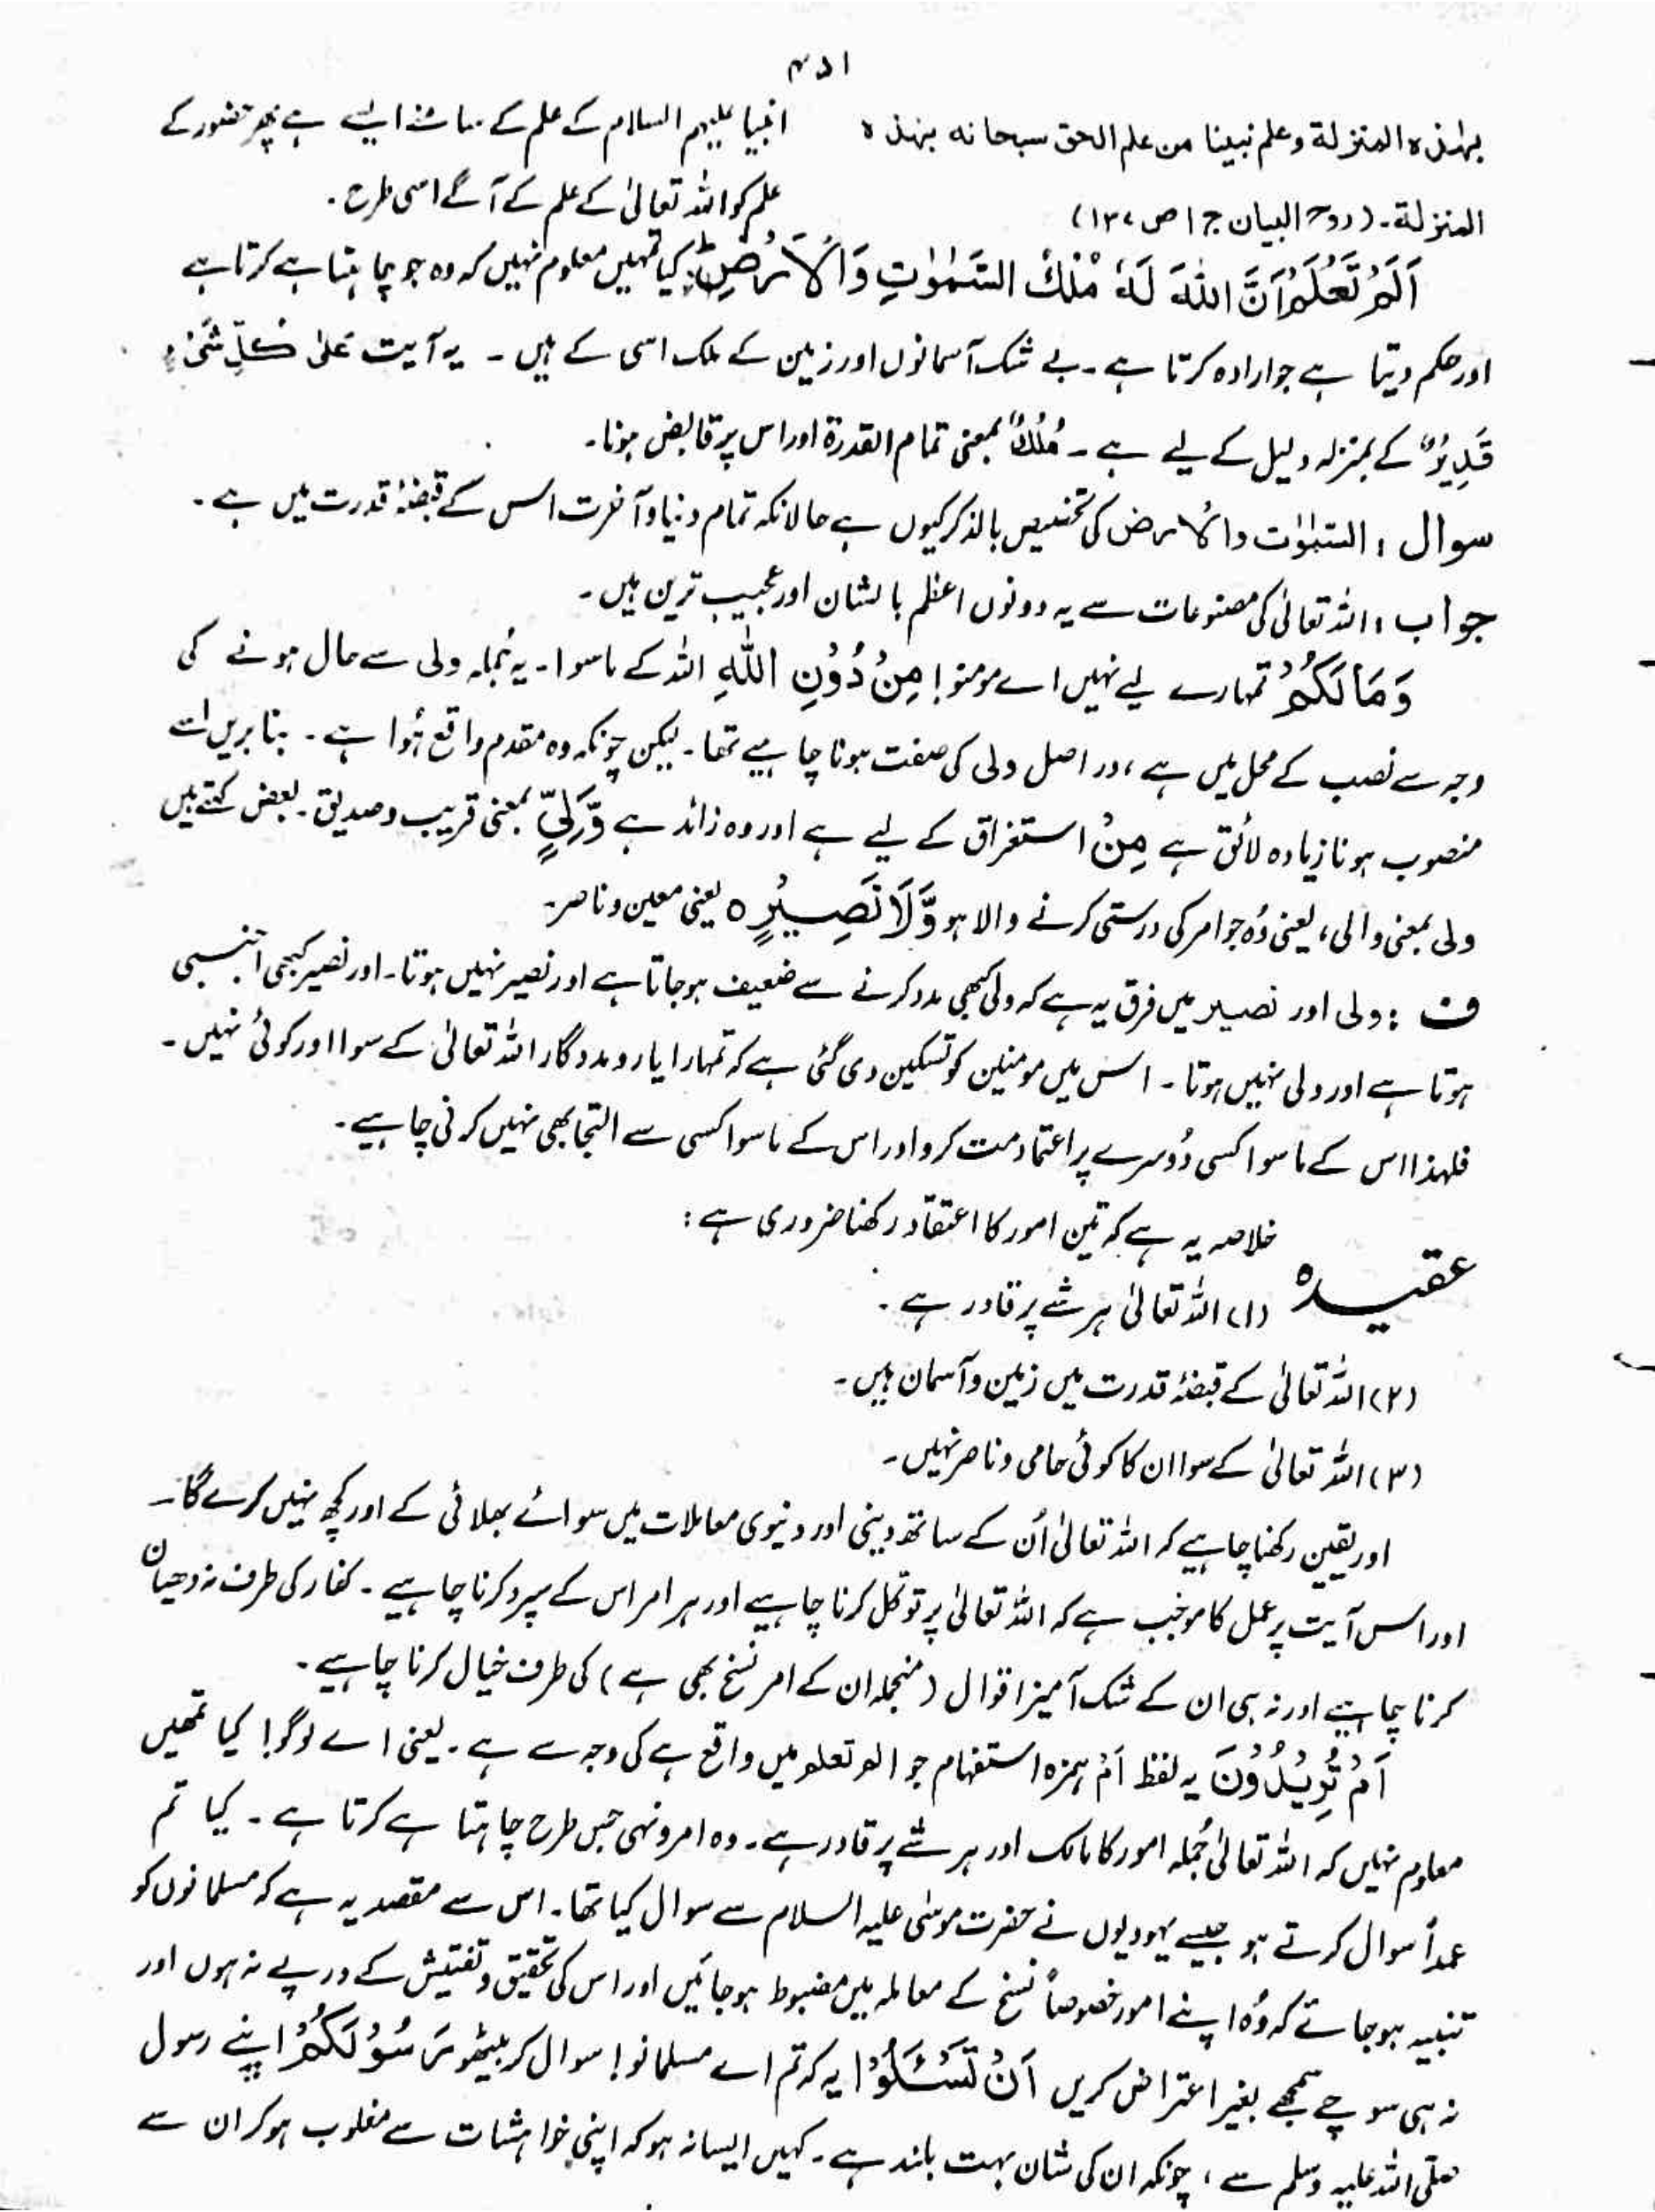 ۴۵۱
بهٰذه المنزلة وعلم نبينا من علم الحق سبحانه بهذه
المنزلة۔ (روح البیان ج ۱ ص ۱۳۷)
انبیا علیہم السلام کے علم کے سامنے ایسے ہے پھر حضور کے
علم کو اللہ تعالیٰ کے علم کے آگے اسی طرح۔
اَلَمْ تَعْلَمْ اَنَّ اللّٰهَ لَهٗ مُلْكُ السَّمٰوٰتِ وَالْاَرْضِ ؕ کیا تمہیں معلوم نہیں کہ وہ جو چاہتا ہے کرتا ہے
اور حکم دیتا ہے جو ارادہ کرتا ہے۔ بے شک آسمانوں اور زمین کے ملک اسی کے ہیں۔ یہ آیت عَلٰی کُلِّ شَیْءٍ
قَدِیْرٌ کے بمنزلہ دلیل کے لیے ہے۔ مُلْكٌ بمعنی تمام القدرۃ اور اس پر قابض ہونا۔
سوال : السَّمٰوٰت والْاَرض کی تخصیص بالذکر کیوں ہے حالانکہ تمام دنیا و آخرت اس کے قبضۂ قدرت میں ہے۔
جواب : اللہ تعالیٰ کی مصنوعات سے یہ دونوں اعظم بالشان اور عجیب ترین ہیں۔
وَمَا لَكُمْ تمہارے لیے نہیں اے مومنو! مِنْ دُوْنِ اللّٰهِ اللہ کے ماسوا۔ یہ جُملہ ولی سے حال ہونے کی
وجہ سے نصب کے محل میں ہے، دراصل ولی کی صفت ہونا چاہیے تھا۔ لیکن چونکہ وہ مقدم واقع ہُوا ہے۔ بنا بریں اسے
منصوب ہونا زیادہ لائق ہے مِنْ استغراق کے لیے ہے اور وہ زائد ہے وَّلِیٍّ بمعنی قریب و صدیق۔ بعض کہتے ہیں
ولی بمعنی والی، یعنی وُہ جو امر کی درستی کرنے والا ہو وَّلَا نَصِیْرٍ ○ یعنی معین و ناصر۔
ف : ولی اور نصیر میں فرق یہ ہے کہ ولی کبھی مدد کرنے سے ضعیف ہوجاتا ہے اور نصیر نہیں ہوتا۔ اور نصیر کبھی اجنبی
ہوتا ہے اور ولی نہیں ہوتا۔ اس میں مومنین کو تسکین دی گئی ہے کہ تمہارا یار و مددگار اللہ تعالیٰ کے سوا اور کوئی نہیں۔
فلہٰذا اس کے ماسوا کسی دُوسرے پر اعتماد مت کرو اور اس کے ماسوا کسی سے التجا بھی نہیں کرنی چاہیے۔
خلاصہ یہ ہے کہ تین امور کا اعتقاد رکھنا ضروری ہے :
عقیدہ
(۱) اللہ تعالیٰ ہر شے پر قادر ہے۔
(۲) اللہ تعالیٰ کے قبضۂ قدرت میں زمین و آسمان ہیں۔
(۳) اللہ تعالیٰ کے سوا ان کا کوئی حامی و ناصر نہیں۔
اور یقین رکھنا چاہیے کہ اللہ تعالیٰ اُن کے ساتھ دینی اور دنیوی معاملات میں سوائے بھلائی کے اور کچھ نہیں کرے گا۔
اور اس آیت پر عمل کا موجب ہے کہ اللہ تعالیٰ پر توکل کرنا چاہیے اور ہر امر اس کے سپرد کرنا چاہیے۔ کفار کی طرف نہ دھیان
کرنا چاہیے اور نہ ہی ان کے شک آمیز اقوال (منجملہ ان کے امر نسخ بھی ہے) کی طرف خیال کرنا چاہیے۔
اَمْ تُرِیْدُوْنَ یہ لفظ اَمْ ہمزہ استفہام جو الم تعلم میں واقع ہے کی وجہ سے ہے۔ یعنی اے لوگو! کیا تمہیں
معلوم نہیں کہ اللہ تعالیٰ جُملہ امور کا مالک اور ہر شے پر قادر ہے۔ وہ امر و نہی جس طرح چاہتا ہے کرتا ہے۔ کیا تم
عمداً سوال کرتے ہو جیسے یہودیوں نے حضرت موسٰی علیہ السلام سے سوال کیا تھا۔ اس سے مقصد یہ ہے کہ مسلمانوں کو
تنبیہ ہوجائے کہ وُہ اپنے امور خصوصاً نسخ کے معاملہ میں مضبوط ہوجائیں اور اس کی تحقیق و تفتیش کے درپے نہ ہوں اور
نہ ہی سوچے سمجھے بغیر اعتراض کریں اَنْ تَسْـَٔلُوْا یہ کہ تم اے مسلمانو! سوال کر بیٹھو رَسُوْلَكُمْ اپنے رسول
صلّی اللہ علیہ وسلم سے، چونکہ ان کی شان بہت بلند ہے۔ کہیں ایسا نہ ہو کہ اپنی خواہشات سے مغلوب ہوکر ان سے